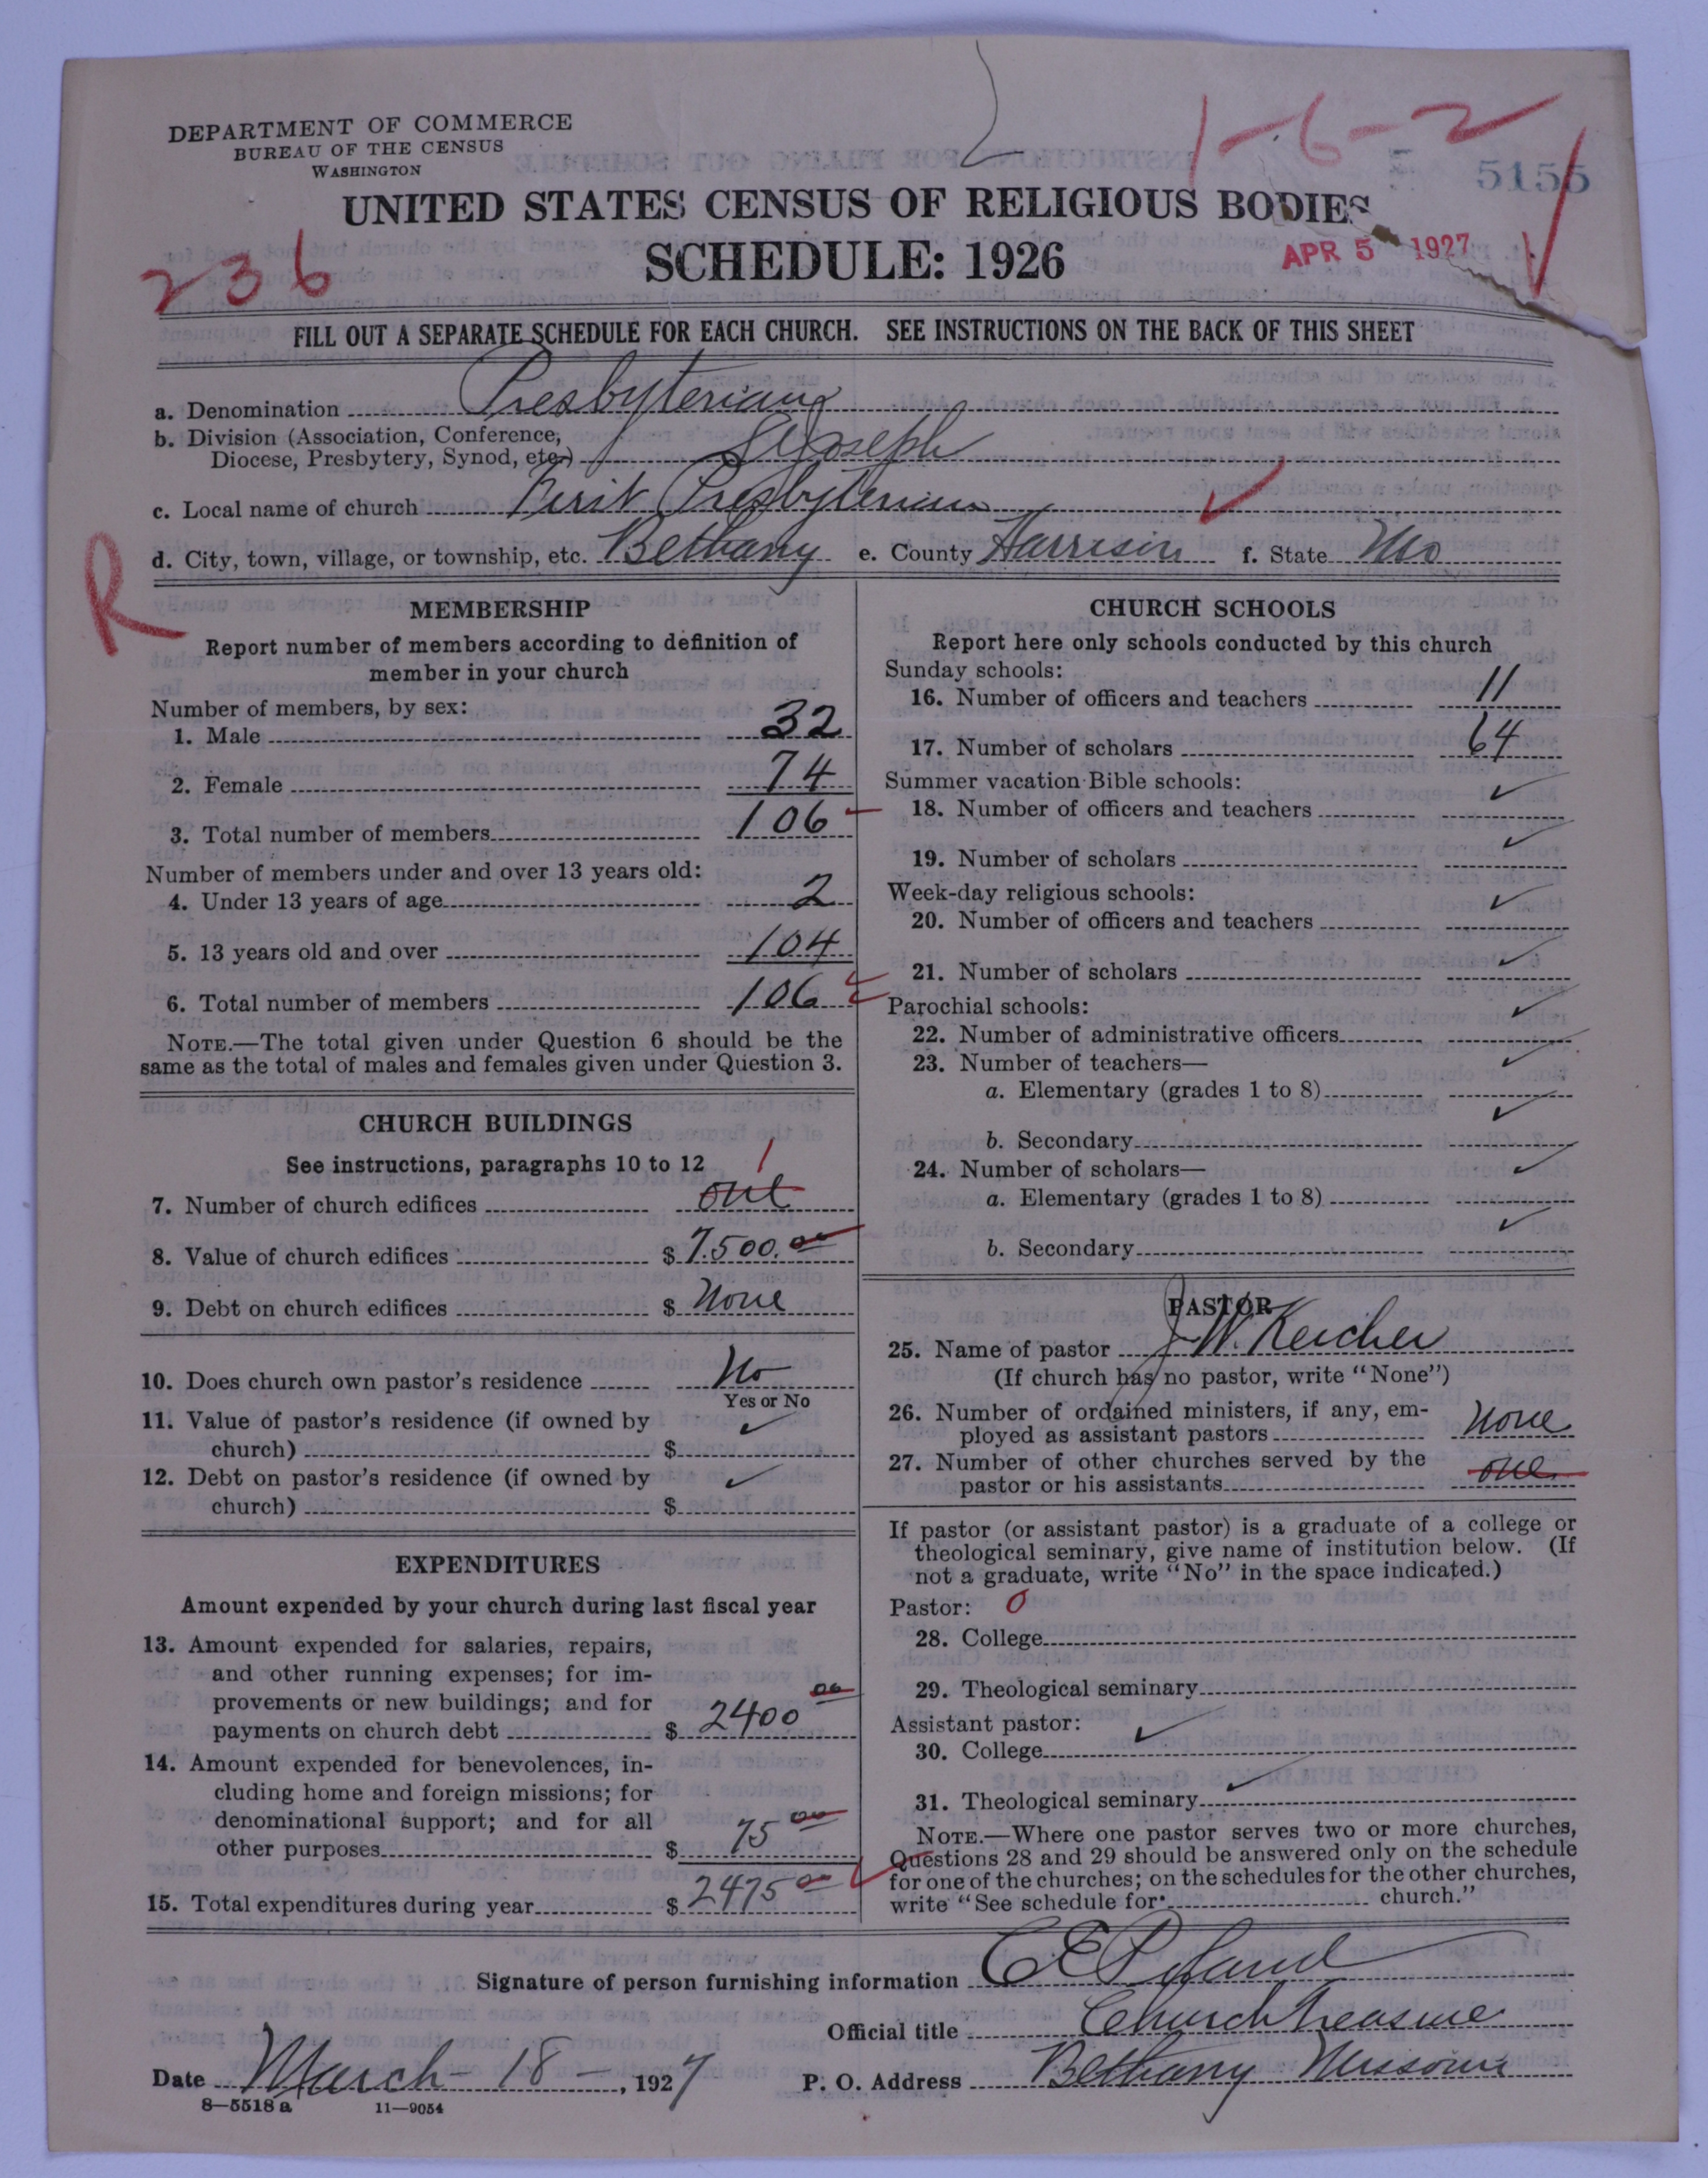 DEPARTMENT OF COMMERCE
BUREAU OF THE CENSUS
WASHINGTON
1-6-2
5155
UNITED STATES CENSUS OF RELIGIOUS BODIES
SCHEDULE: 1926
APR 5 1927
236
FILL OUT A SEPARATE SCHEDULE FOR EACH CHURCH. SEE INSTRUCTIONS ON THE BACK OF THIS SHEET
a. Denomination Presbyterian
b. Division (Association, Conference,
Diocese, Presbytery, Synod, etc.) St Joseph
c. Local name of church First Presbyterian
d. City, town, village, or township, etc. Bethany e. County Harrison f. State Mo
R
MEMBERSHIP
Report number of members according to definition of
member in your church
Number of members, by sex:
1. Male 32
2. Female 74
3. Total number of members 106
Number of members under and over 13 years old:
4. Under 13 years of age 2
5. 13 years old and over 104
6. Total number of members 106
NOTE.—The total given under Question 6 should be the
same as the total of males and females given under Question 3.
CHURCH BUILDINGS
See instructions, paragraphs 10 to 12 1
7. Number of church edifices one
8. Value of church edifices $ 7.500.00
9. Debt on church edifices $ None
10. Does church own pastor's residence No
Yes or No
11. Value of pastor's residence (if owned by
church) $ ✓
12. Debt on pastor's residence (if owned by
church) $ ✓
EXPENDITURES
Amount expended by your church during last fiscal year
13. Amount expended for salaries, repairs,
and other running expenses; for im-
provements or new buildings; and for
payments on church debt $ 2400 00
14. Amount expended for benevolences, in-
cluding home and foreign missions; for
denominational support; and for all
other purposes $ 75 00
15. Total expenditures during year $ 2475 00
CHURCH SCHOOLS
Report here only schools conducted by this church
Sunday schools:
16. Number of officers and teachers 11
17. Number of scholars 64
Summer vacation Bible schools:
18. Number of officers and teachers ✓
19. Number of scholars ✓
Week-day religious schools:
20. Number of officers and teachers ✓
21. Number of scholars ✓
Parochial schools:
22. Number of administrative officers ✓
23. Number of teachers—
a. Elementary (grades 1 to 8) ✓
b. Secondary ✓
24. Number of scholars—
a. Elementary (grades 1 to 8) ✓
b. Secondary ✓
PASTOR
25. Name of pastor J. W. Kercher
(If church has no pastor, write "None")
26. Number of ordained ministers, if any, em-
ployed as assistant pastors None
27. Number of other churches served by the
pastor or his assistants one
If pastor (or assistant pastor) is a graduate of a college or
theological seminary, give name of institution below. (If
not a graduate, write "No" in the space indicated.)
Pastor: 0
28. College
29. Theological seminary
Assistant pastor: ✓
30. College
31. Theological seminary ✓
NOTE.—Where one pastor serves two or more churches,
Questions 28 and 29 should be answered only on the schedule
for one of the churches; on the schedules for the other churches,
write "See schedule for church."
Signature of person furnishing information C E
Official title Church Treasure
Date March 18 —, 1927 P. O. Address Bethany Missouri
8—5518 a 11—9054